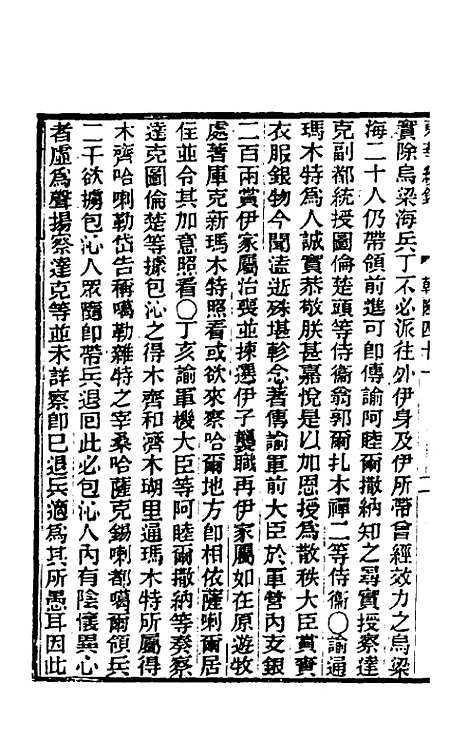 東華續錄 乾隆四十一 二
實除烏梁海兵丁不必派往外伊身及伊所帶曾經效力之烏梁
海二十人仍帶領前進可卽傳諭阿睦爾撒納知之尋實授察達
克副都統授圖倫楚頭等侍衞翁郭爾扎木禪二等侍衞〇諭通
瑪木特爲人誠實恭敬朕甚嘉悅是以加恩授爲散秩大臣賞賚
衣服銀物今聞溘逝殊堪軫念著傳諭軍前大臣於軍營內支銀
二百兩賞伊家屬治喪並揀選伊子襲職再伊家屬如在原遊牧
處著庫克新瑪木特照看或欲來察哈爾地方卽相依薩喇爾居
住並令其加意照看〇丁亥諭軍機大臣等阿睦爾撒納等奏察
達克圖倫楚等據包沁之得木齊和濟木瑚里通瑪木特所屬得
木齊哈喇勒岱告稱噶勒雜特之宰桑哈薩克錫喇都噶爾領兵
二千欲擄包沁人眾隨卽帶兵退回此必包沁人內有陰懷異心
者虛爲聲揚察達克等並未詳察卽已退兵適爲其所愚耳因此